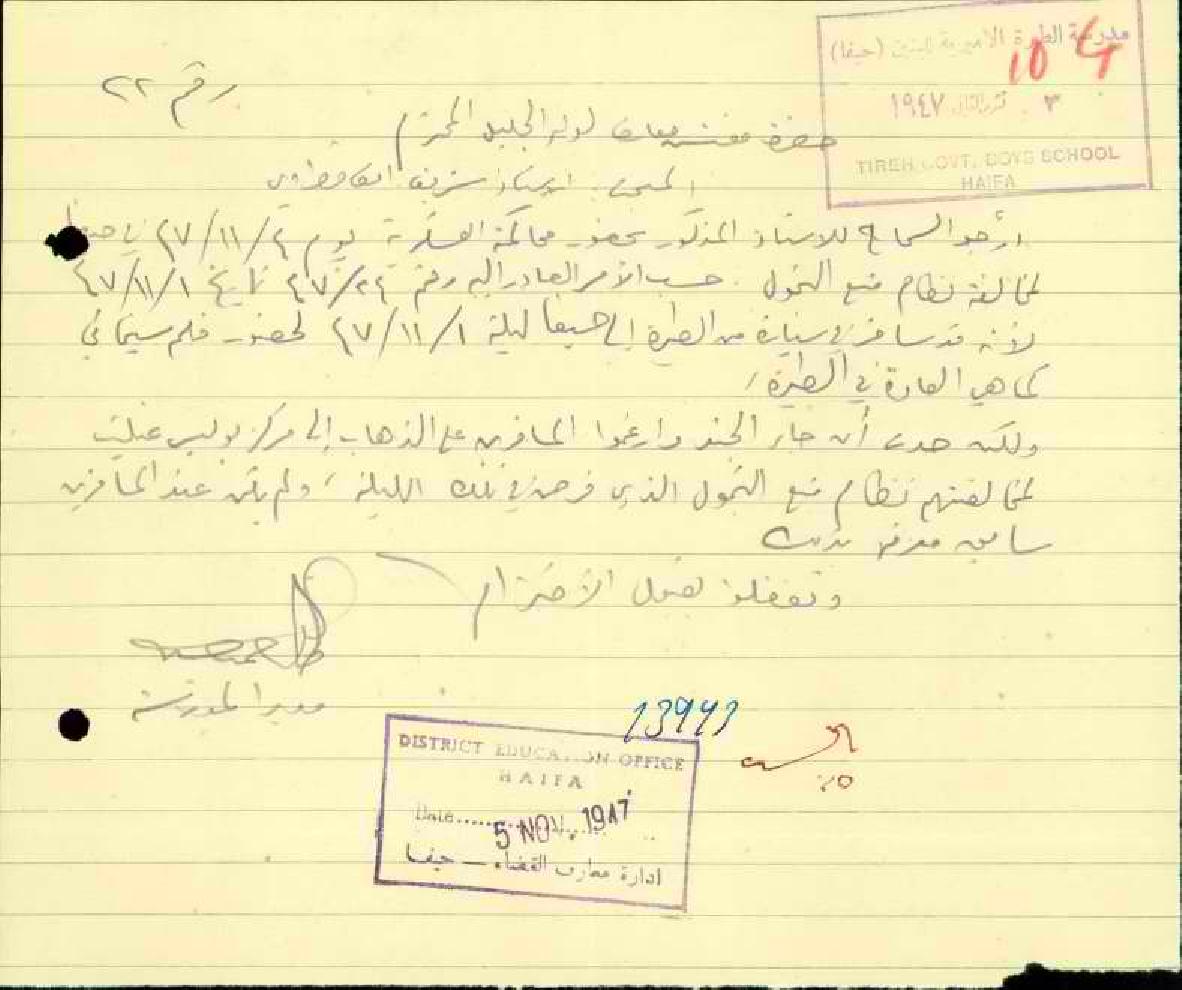 مدرسة الطيرة الاميرية للبنين (حيفا)
٣ تشرين الثاني ١٩٤٧
TIREH GOVT. BOYS SCHOOL
HAIFA
رقم ٢٢
حضرة مفتش معارف لواء الجليل المحترم
الاستاذ شريف
ارجو السماح للاستاذ المذكور بحضور محاكمة العسكرية يوم ٤/١١/٤٧ في حيفا
لمخالفة نظام منع التجول. حسب الأمر الصادر اليه رقم ٢٤/٤٧ تاريخ ١/١١/٤٧
لأنه قد سافر في سيارة من الطيرة إلى حيفا ليلة ١/١١/٤٧ لحضور فلم سينمائي
كما هي العادة في الطيرة،
ولكن حدث أن جاء الجند وارغموا المسافرين على الذهاب إلى مركز بوليس عتليت
لمخالفتهم نظام منع التجول الذي فرض في تلك الليلة، ولم يكن عند المسافرين
سابق معرفة بذلك
وتفضلوا بقبول الاحترام
مدير المدرسة
13943
DISTRICT EDUCATION OFFICE
HAIFA
Date 5 NOV. 1947
ادارة معارف القضاء – حيفا